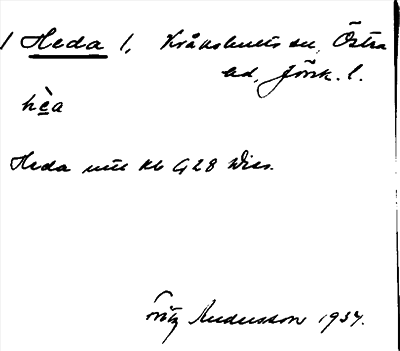 / Heda /, Kråkshults sn, Östra
hd, Jönk. l.
hèa
Heda mit kb G 28 Diss.
Fritz Andersson 1937.